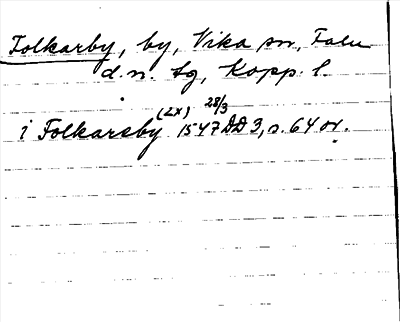 Folkarby, by, Vika sn, Falu
d.n. tg, Kopp. l.
(2x) 28/3
i Folkareby 1547 DD 3, s. 64 or.